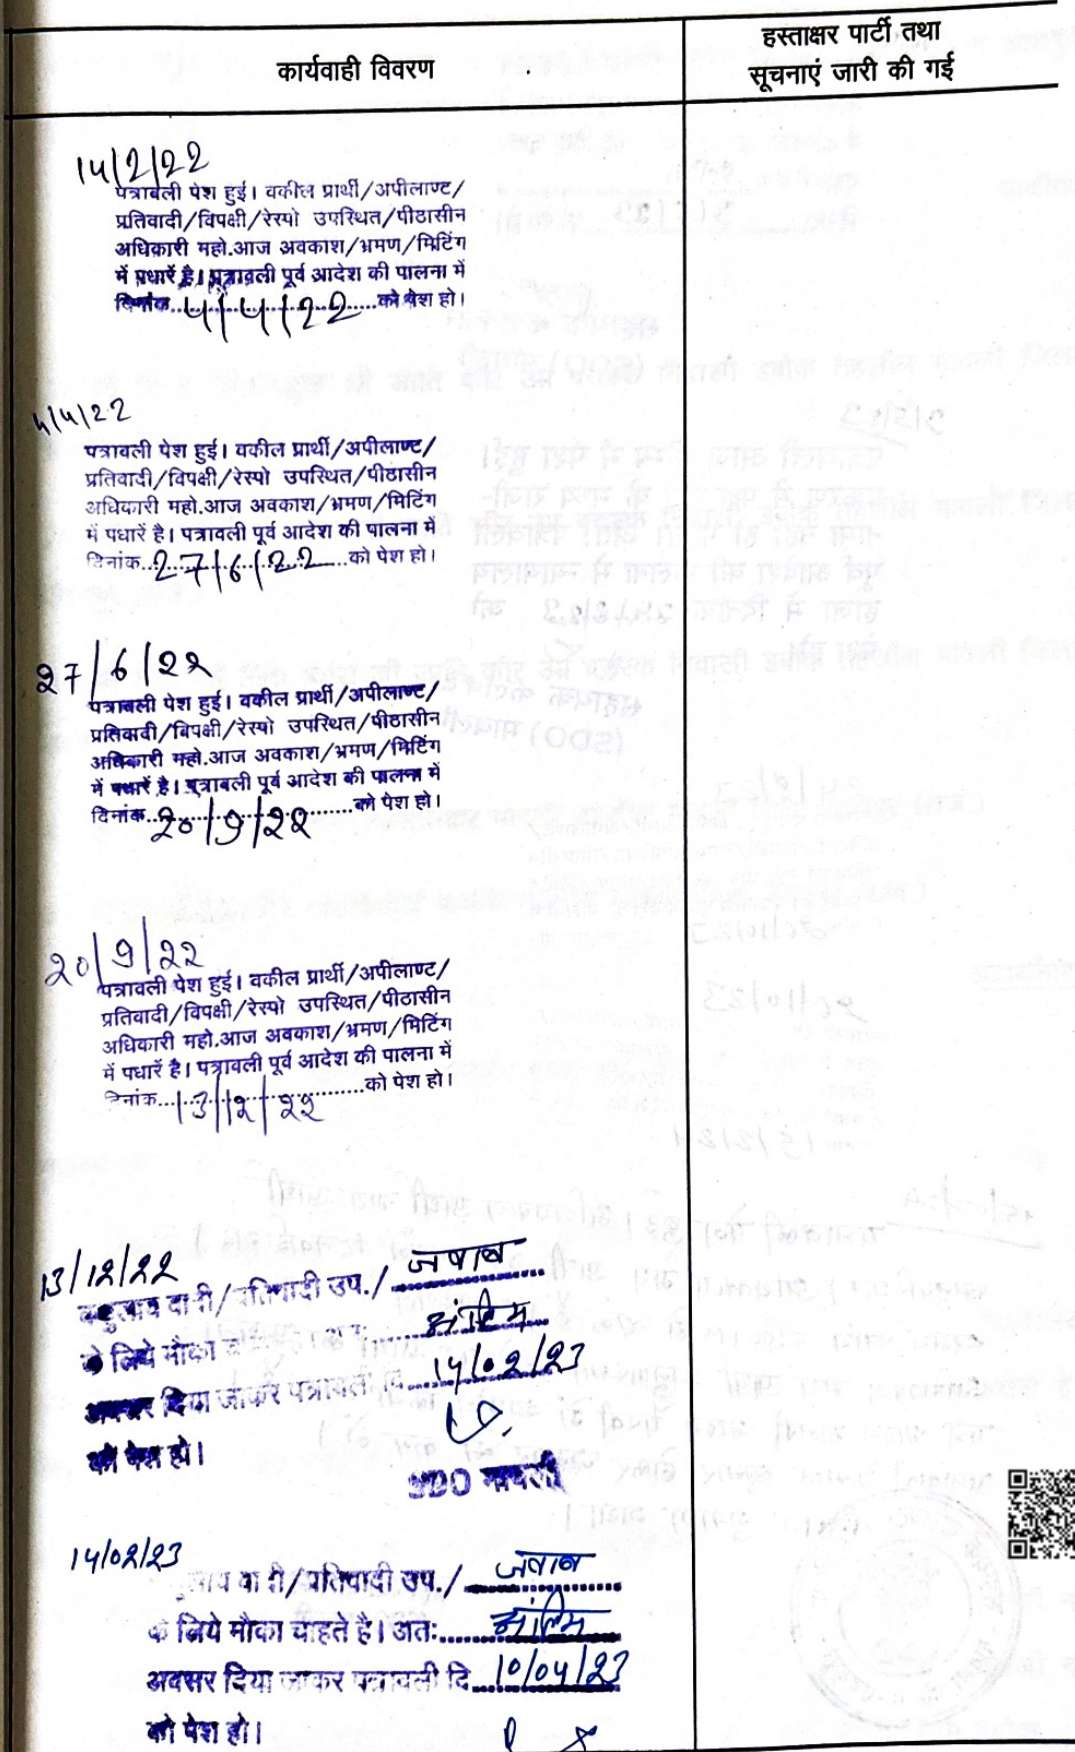 कार्यवाही विवरण
हस्ताक्षर पार्टी तथा
सूचनाएं जारी की गई
14/2/22
पत्रावली पेश हुई। वकील प्रार्थी/अपीलाण्ट/
प्रतिवादी/विपक्षी/रेस्पो उपस्थित/पीठासीन
अधिकारी महो.आज अवकाश/भ्रमण/मिटिंग
में पधारें है। पत्रावली पूर्व आदेश की पालना में
दिनांक..4/4/22...को पेश हो।
4/4/22
पत्रावली पेश हुई। वकील प्रार्थी/अपीलाण्ट/
प्रतिवादी/विपक्षी/रेस्पो उपस्थित/पीठासीन
अधिकारी महो.आज अवकाश/भ्रमण/मिटिंग
में पधारें है। पत्रावली पूर्व आदेश की पालना में
दिनांक..27/6/22...को पेश हो।
27/6/22
पत्रावली पेश हुई। वकील प्रार्थी/अपीलाण्ट/
प्रतिवादी/विपक्षी/रेस्पो उपस्थित/पीठासीन
अधिकारी महो.आज अवकाश/भ्रमण/मिटिंग
में पधारें है। पत्रावली पूर्व आदेश की पालना में
दिनांक..20/9/22...को पेश हो।
20/9/22
पत्रावली पेश हुई। वकील प्रार्थी/अपीलाण्ट/
प्रतिवादी/विपक्षी/रेस्पो उपस्थित/पीठासीन
अधिकारी महो.आज अवकाश/भ्रमण/मिटिंग
में पधारें है। पत्रावली पूर्व आदेश की पालना में
दिनांक...13/12/22...को पेश हो।
13/12/22
वादी/प्रतिवादी उप./ जवाब
के लिये मौका अंतिम
अवसर दिया जाकर पत्रावली दि 14/02/23
को पेश हो।
SDO मावली
14/02/23
वादी/प्रतिवादी उप./ जवाब
के लिये मौका चाहते है। अतः अंतिम
अवसर दिया जाकर पत्रावली दि 10/04/23
को पेश हो।